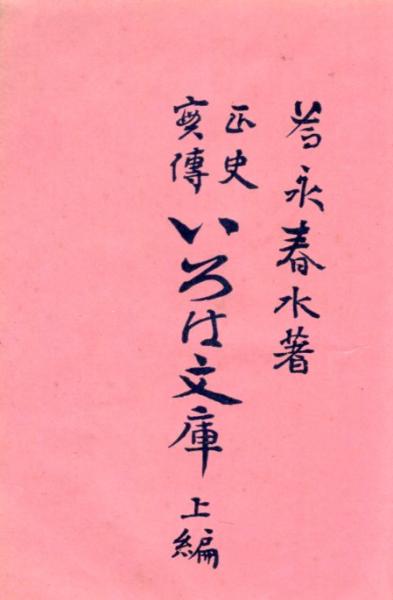 為永春水著
正史
實傳
いろは文庫 上編